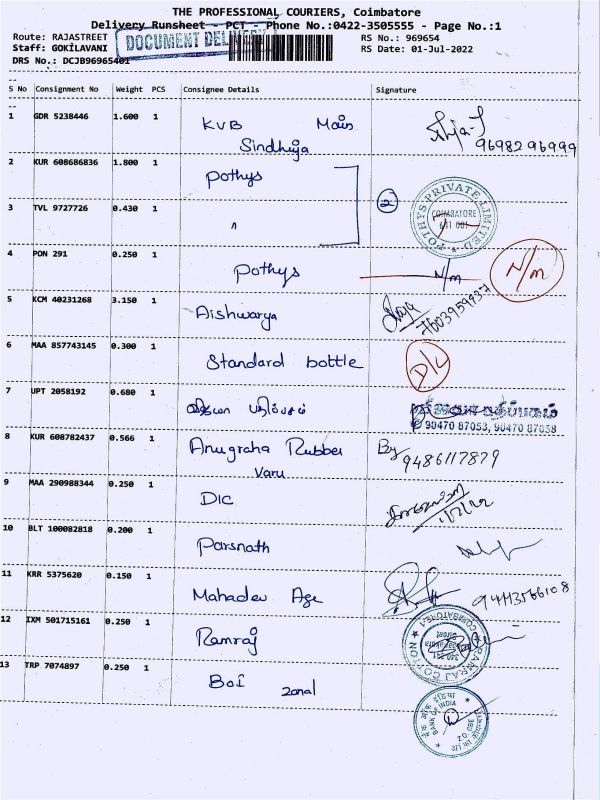 THE PROFESSIONAL COURIERS, Coimbatore
Delivery Runsheet - PCT - Phone No.:0422-3505555 - Page No.:1
Route: RAJASTREET RS No.: 969654
Staff: GOKILAVANI DOCUMENT DELIVERY RS Date: 01-Jul-2022
DRS No.: DCJB96965401
S No Consignment No Weight PCS Consignee Details Signature
1 GDR 5238446 1.600 1 KVB Main
Sindhuja 96982 96999
2 KUR 608686836 1.800 1 Pothys
3 TVL 9727726 0.430 1 " 2 POTHYS PRIVATE LIMITED COIMBATORE 641 001
4 PON 291 0.250 1 Pothys N/m N/m
5 KCM 40231268 3.150 1 Aishwarya 7603959937
6 MAA 857743145 0.300 1 Standard bottle D/L
7 UPT 2058192 0.680 1 விஜயா பதிப்பகம்
90470 87053, 90470 87058
8 KUR 608782437 0.566 1 Anugraha Rubber By 9486117879
Varu
9 MAA 290988344 0.250 1 DIC 1/7/22
10 BLT 100082818 0.200 1 Parsnath
11 KRR 5375620 0.150 1 Mahadev Age
12 IXM 501715161 0.250 1 Ramraj RAMRAJ COTTON COIMBATORE
13 TRP 7074897 0.250 1 BOI zonal
BANK OF INDIA